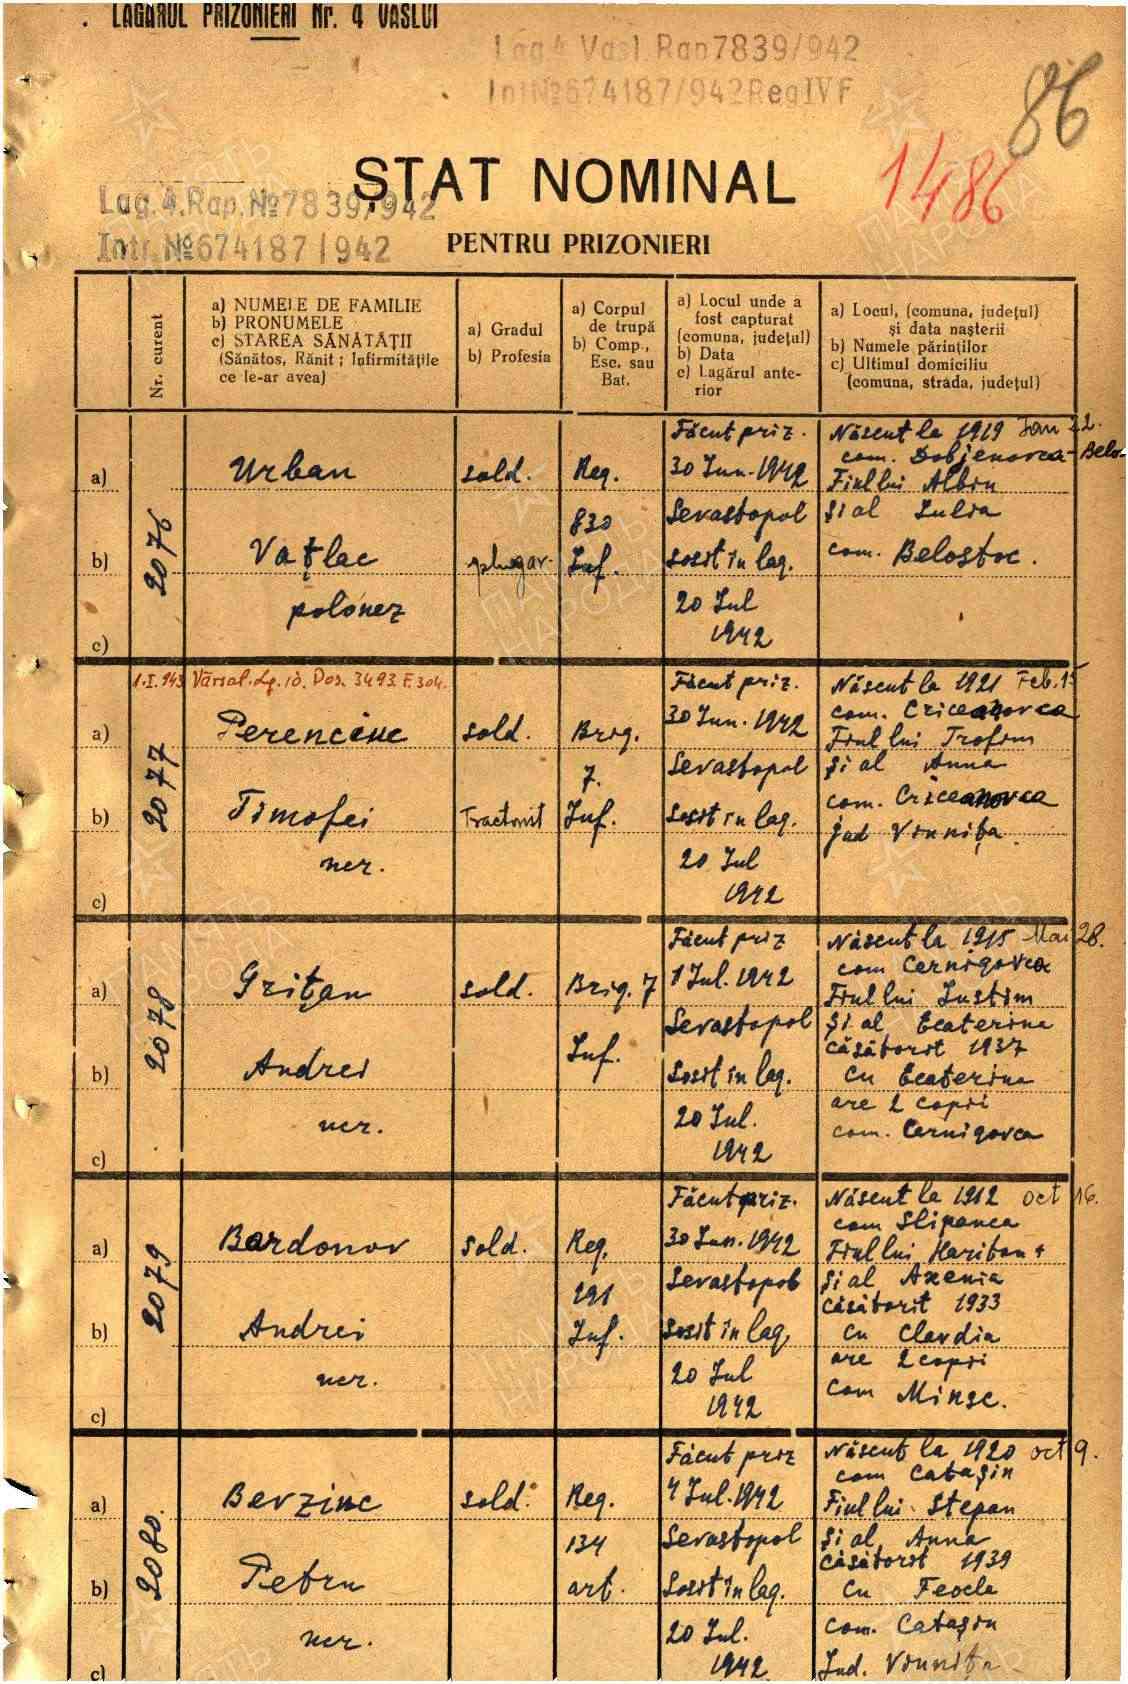 LAGĂRUL PRIZONIERI Nr. 4 VASLUI
Lag 4 Vasl. Rap 7839/942
Int №674187/942 Reg IV F
86
1486
ȘTAT NOMINAL
Lag. 4. Rap. № 7839/942
Intr. № 674187/942
PENTRU PRIZONIERI
Nr. curent
a) NUMELE DE FAMILIE
b) PRONUMELE
c) STAREA SĂNĂTĂȚII
(Sănătos, Rănit ; Infirmitățile
ce le-ar avea)
a) Gradul
b) Profesia
a) Corpul
de trupă
b) Comp.,
Esc. sau
Bat.
a) Locul unde a
fost capturat
(comuna, județul)
b) Data
c) Lagărul ante-
rior
a) Locul, (comuna, județul)
și data nașterii
b) Numele părinților
c) Ultimul domiciliu
(comuna, strada, județul)
2076
a)
b)
c)
Urban
Vațlac
polonez
sold.
plugar.
Reg.
830
Inf.
Făcut priz.
30 Iun. 1942
Sevastopol
Sosit în lag.
20 Iul
1942
Născut la 1919 Ian 22.
com. Dobjenovca - Belo-
Fiul lui Albin
și al Iulia
com. Belostoc.
1.I.943 Vărsat. Lg. 10. Dos. 3493 F. 304.
2077
a)
b)
c)
Perenciuc
Timofei
ucr.
sold.
Tractorist
Brig.
7.
Inf.
Făcut priz.
30 Iun. 1942
Sevastopol
Sosit în lag.
20 Iul
1942
Născut la 1921 Feb. 15
com. Criceanovca
Fiul lui Trofim
și al Anna
com. Criceanovca
jud Vinnița.
2078
a)
b)
c)
Grițan
Andrei
ucr.
sold.
Brig. 7
Inf.
Făcut priz
1 Iul. 1942
Sevastopol
Sosit în lag.
20 Iul.
1942
Născut la 1915 Mai 28.
com Cernigovca
Fiul lui Iustim
și al Ecaterina
căsătorit 1937
cu Ecaterina
are 2 copii
com. Cernigovca
2079
a)
b)
c)
Bardonov
Andrei
ucr.
sold.
Reg.
291
Inf.
Făcut priz.
30 Iun. 1942
Sevastopol
Sosit în lag,
20 Iul
1942
Născut la 1912 oct 16.
com Slipanca
Fiul lui Hariton +
și al Axenia
căsătorit 1933
cu Clavdia
are 2 copii
com Minsc.
2080.
a)
b)
c)
Berziuc
Petru
ucr.
sold.
Reg.
134
art.
Făcut priz
4 Iul. 1942
Sevastopol
Sosit în lag.
20 Iul.
1942
Născut la 1920 oct 9.
com Catașin
Fiul lui Stepan
și al Anna
căsătorit 1939
cu Feocla
com. Catașin
Jud. Vinnița